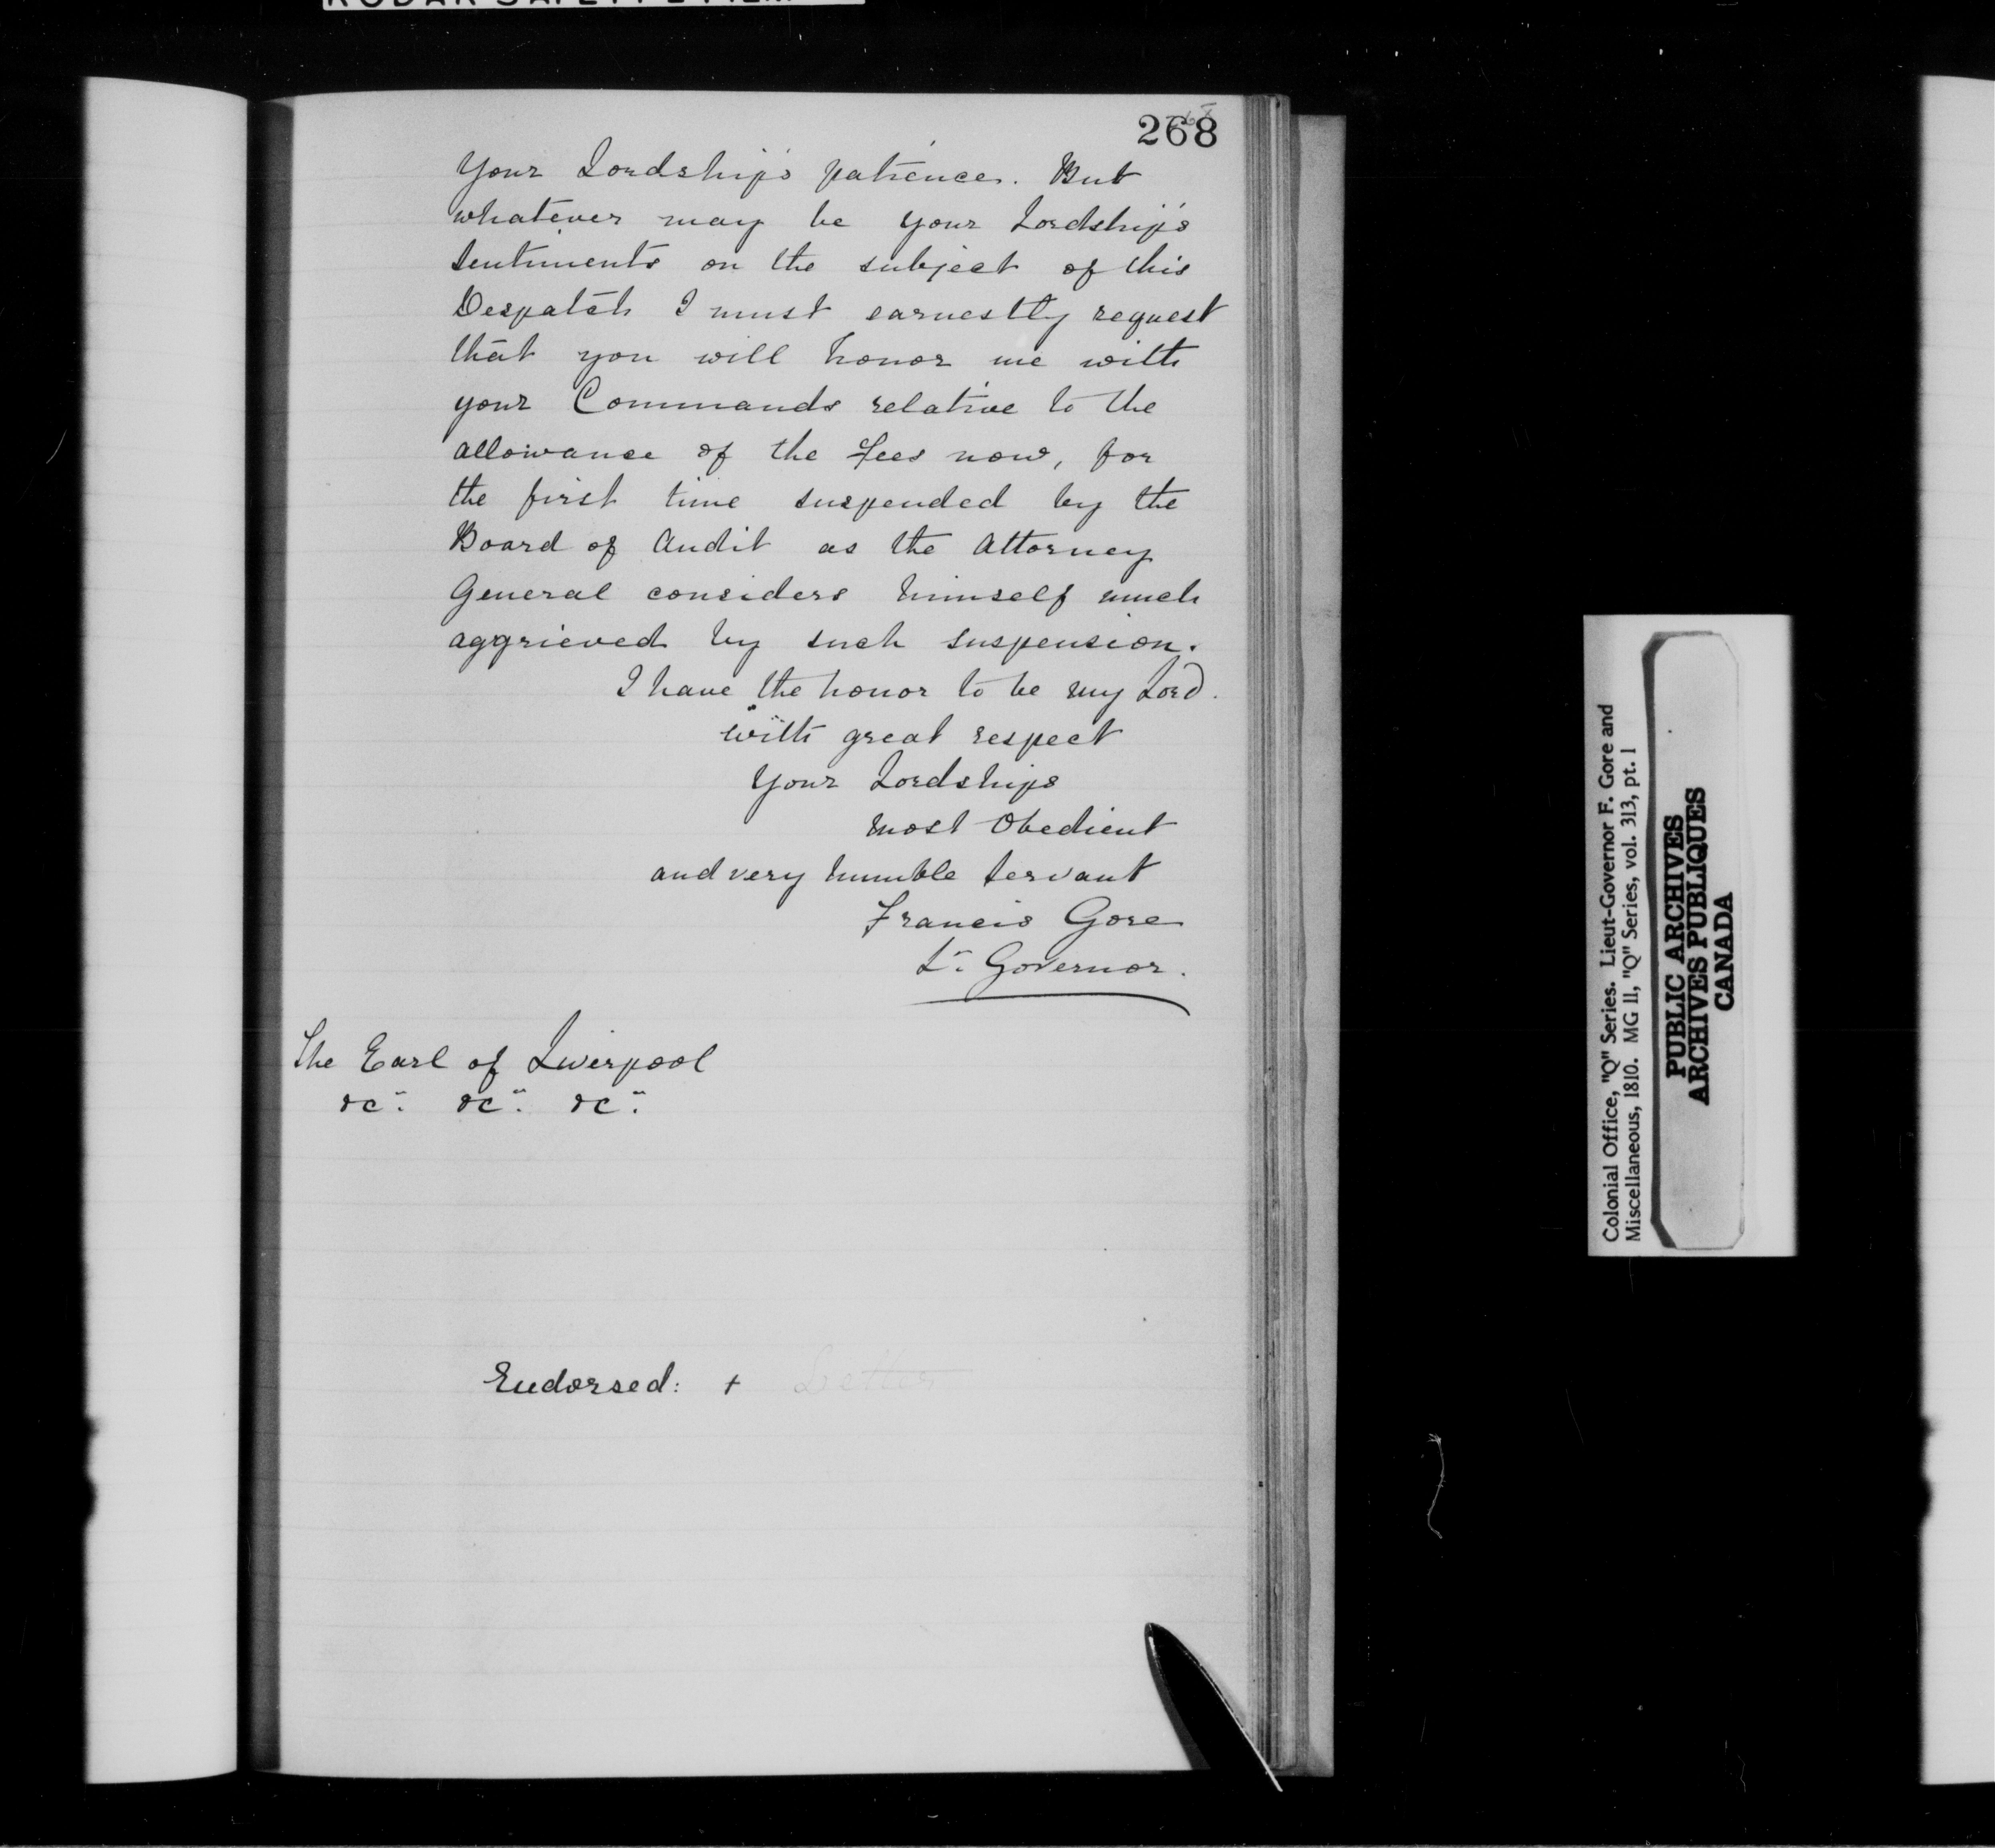 268
Your Lordship's patience. But
whatever may be your Lordship's
Sentiments on the subject of this
Despatch I must earnestly request
that you will honor me with
your Commands relative to the
allowance of the Fees now, for
the first time suspended by the
Board of Audit as the Attorney
General considers himself much
aggrieved by such suspension.
I have the honor to be my Lord.
with great respect
Your Lordships
most Obedient
and very humble Servant
Francis Gore
Lt. Governor.
The Earl of Liverpool
&c. &c. &c.
Endorsed: + Letter
Colonial Office, "Q" Series. Lieut-Governor F. Gore and
Miscellaneous, 1810. MG 11, "Q" Series, vol. 313, pt. 1
PUBLIC ARCHIVES
ARCHIVES PUBLIQUES
CANADA